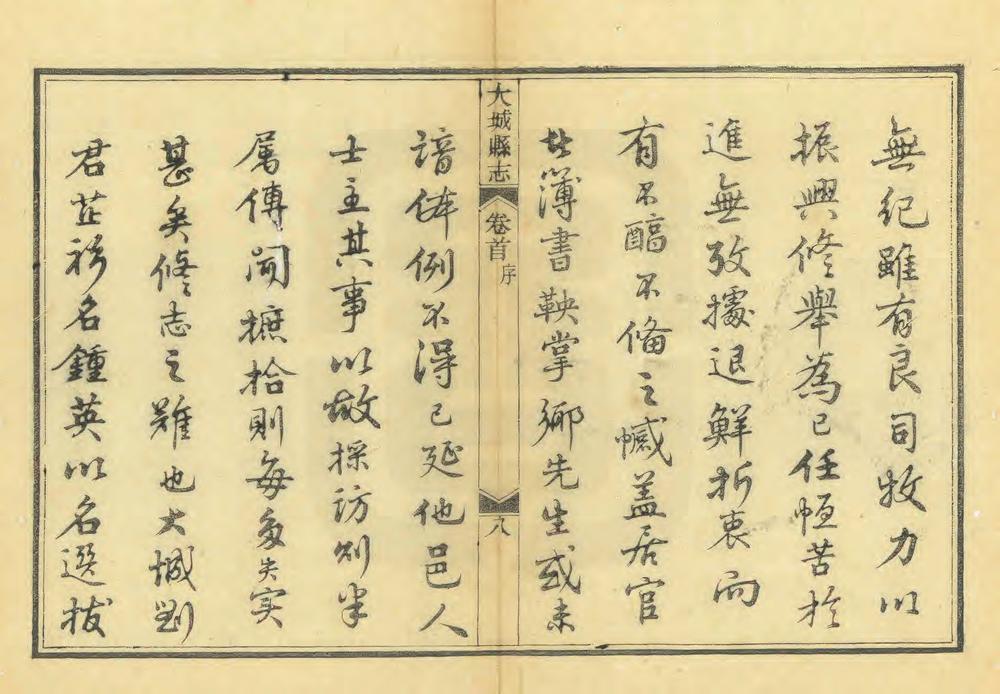 無紀雖有良司牧力以
振興修舉為己任恆苦於
進無攷據退鮮折衷而
有不醕不備之憾盖居官
者簿書鞅掌鄉先生或未
大城縣志
卷首
序
八
諳体例不得已延他邑人
士主其事以故採访列半
属傳闻摭拾則每多失实
甚矣修志之難也大城劉
君芷衫名鍾英以名選拔